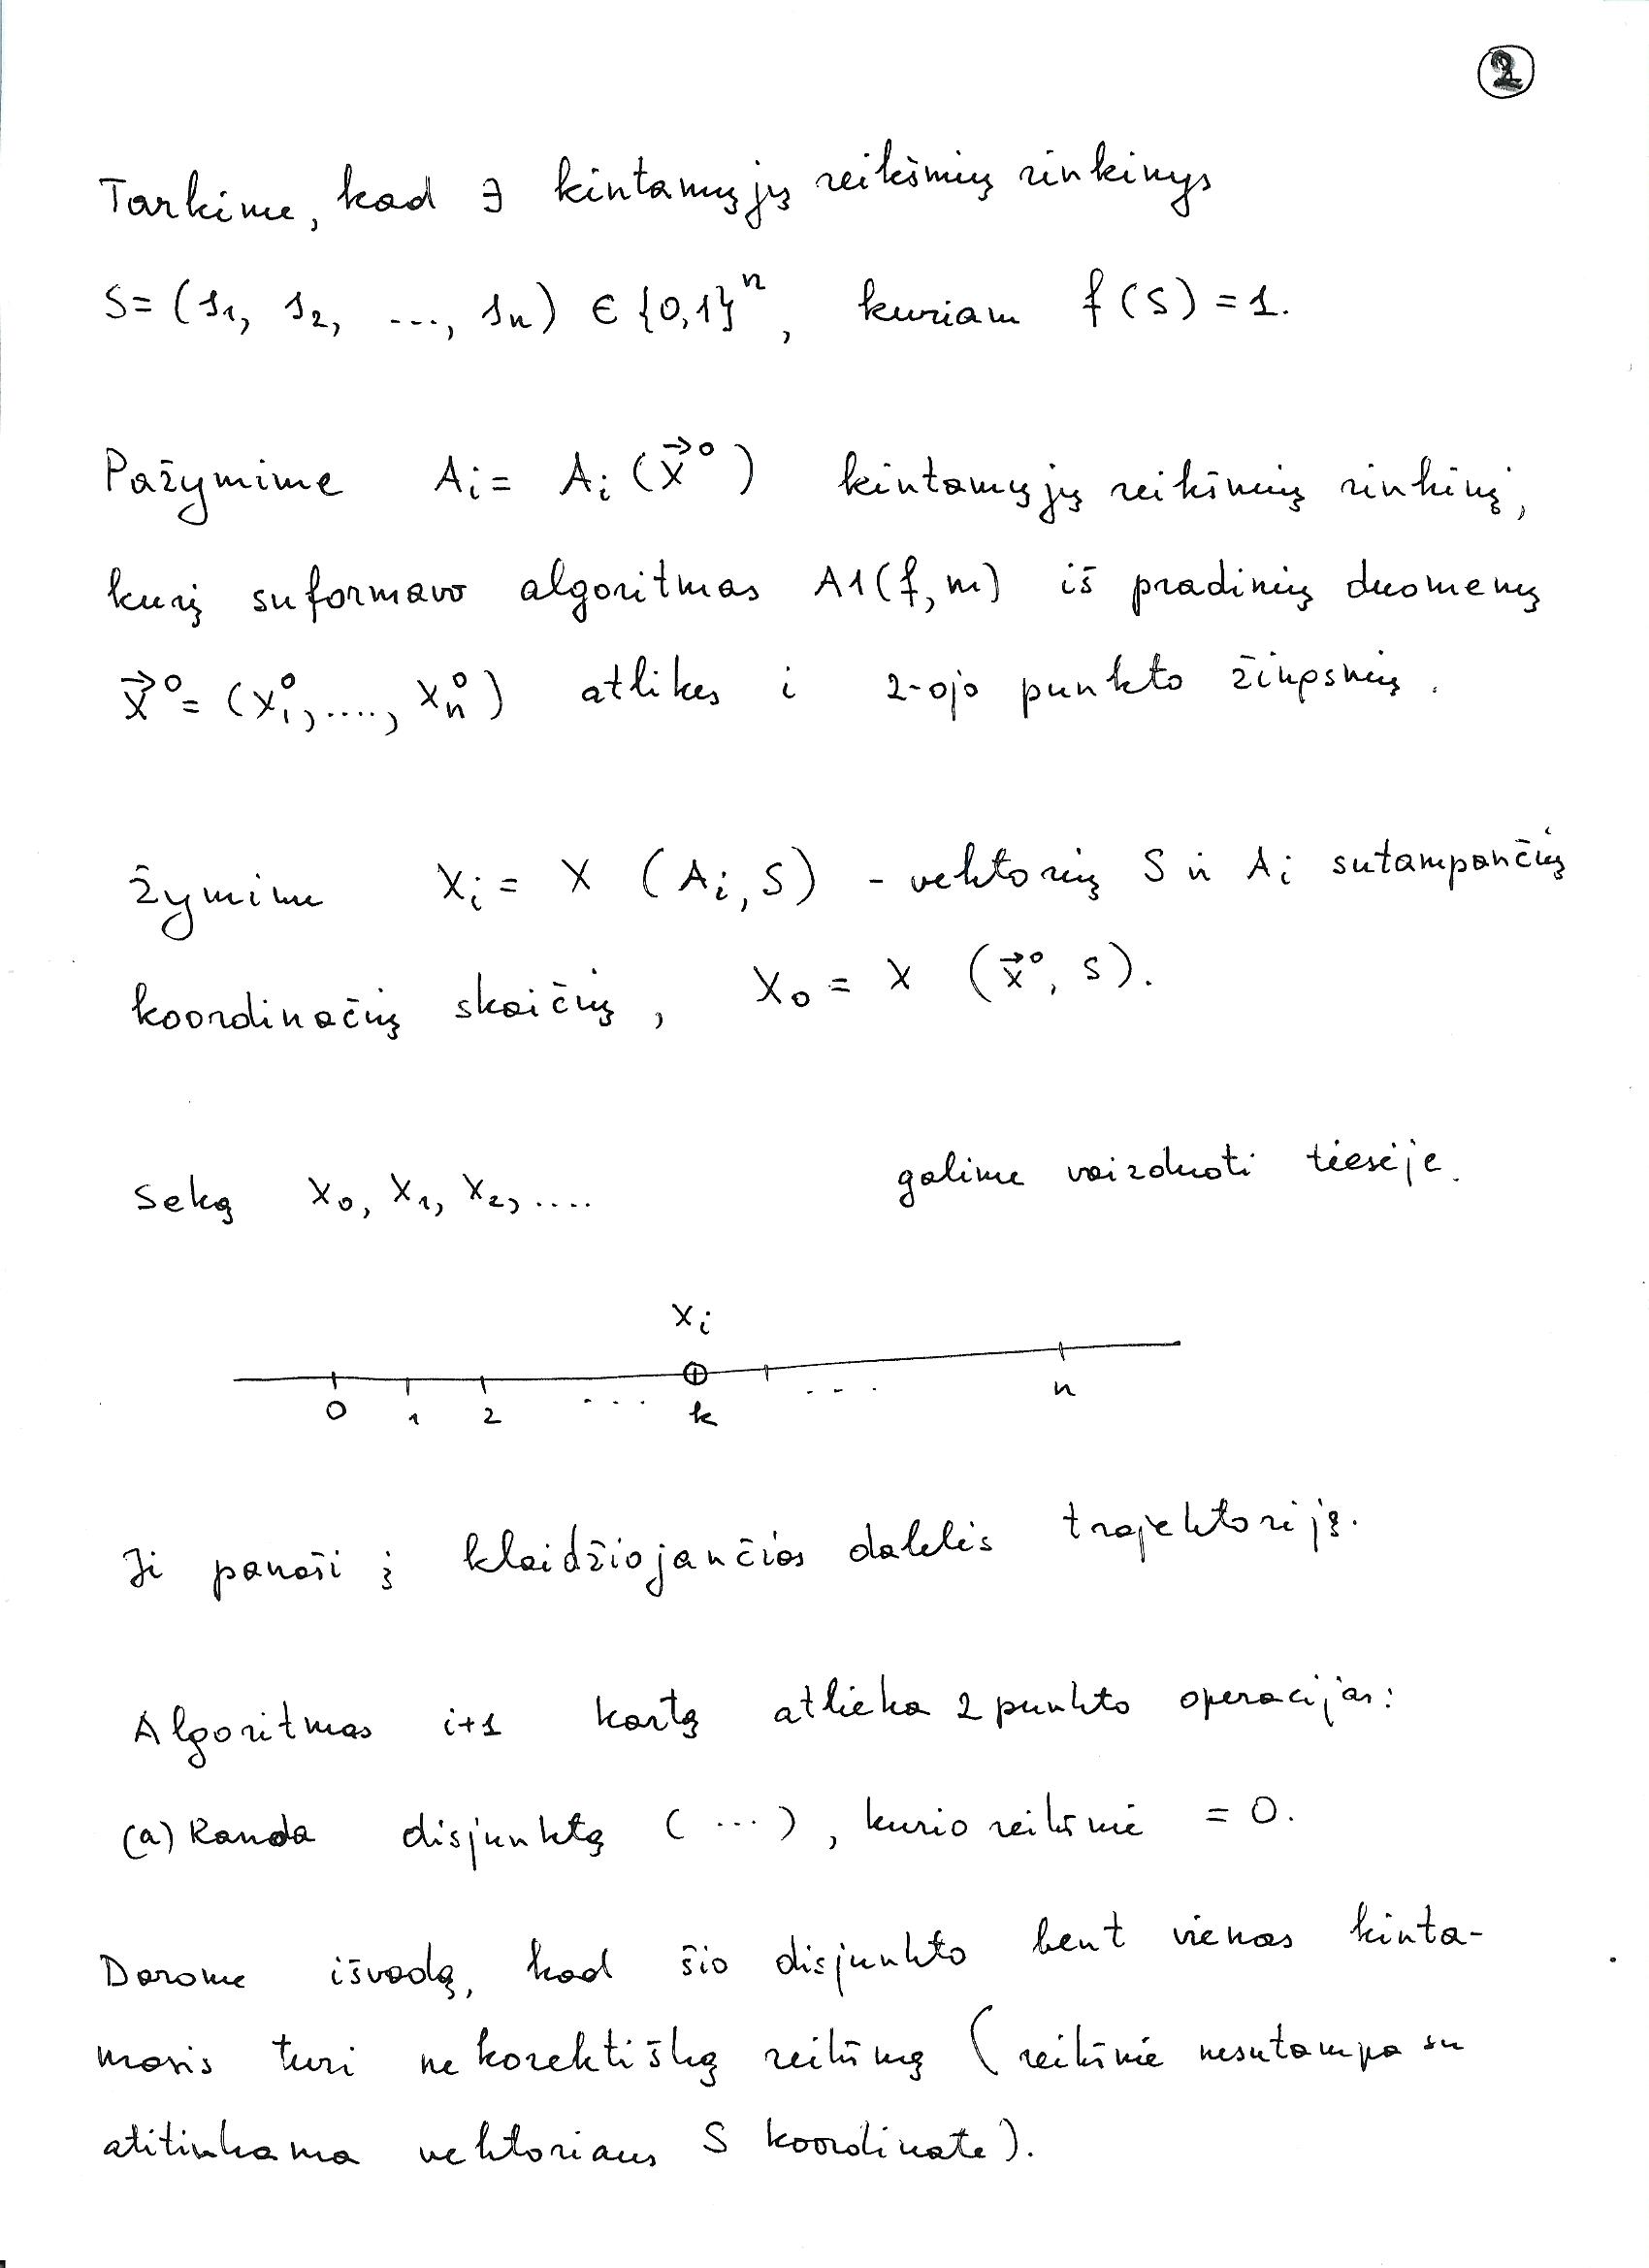 2
Tarkime, kad ∃ kintamųjų reikšmių rinkinys
S = (s₁, s₂, ..., sₙ) ∈ {0,1}ⁿ, kuriam f(S) = 1.
Pažymime Aᵢ = Aᵢ(x⃗⁰) kintamųjų reikšmių rinkinį,
kurį suformavo algoritmas A1(f,m) iš pradinių duomenų
x⃗⁰ = (x₁⁰, ...., xₙ⁰) atlikęs i 2-ojo punkto žingsnių.
Žymime Xᵢ = X (Aᵢ, S) - vektorių S ir Aᵢ sutampančių
koordinačių skaičių, X₀ = X (x⃗⁰, S).
Seką X₀, X₁, X₂, .... galime vaizduoti tiesėje.
Xᵢ
0 1 2 ... k ... n
Ji panaši į klaidžiojančios dalelės trajektoriją.
Algoritmas i+1 kartą atlieka 2 punkto operacijas:
(a) Randa disjunktą (...), kurio reikšmė = 0.
Darome išvadą, kad šio disjunkto bent vienas kinta-
masis turi nekorektišką reikšmę (reikšmė nesutampa su
atitinkama vektoriaus S koordinate).